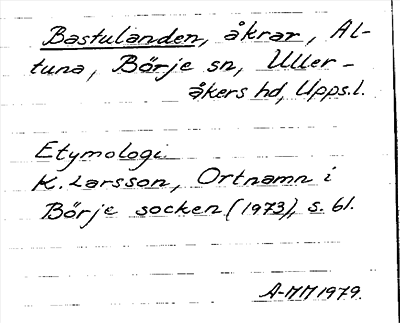 Bastulanden, åkrar, Al-
tuna, Börje sn, Uller-
åkers hd, Upps.l.
Etymologi
K. Larsson, Ortnamn i
Börje socken (1973), s. 61.
A-MM 1979.